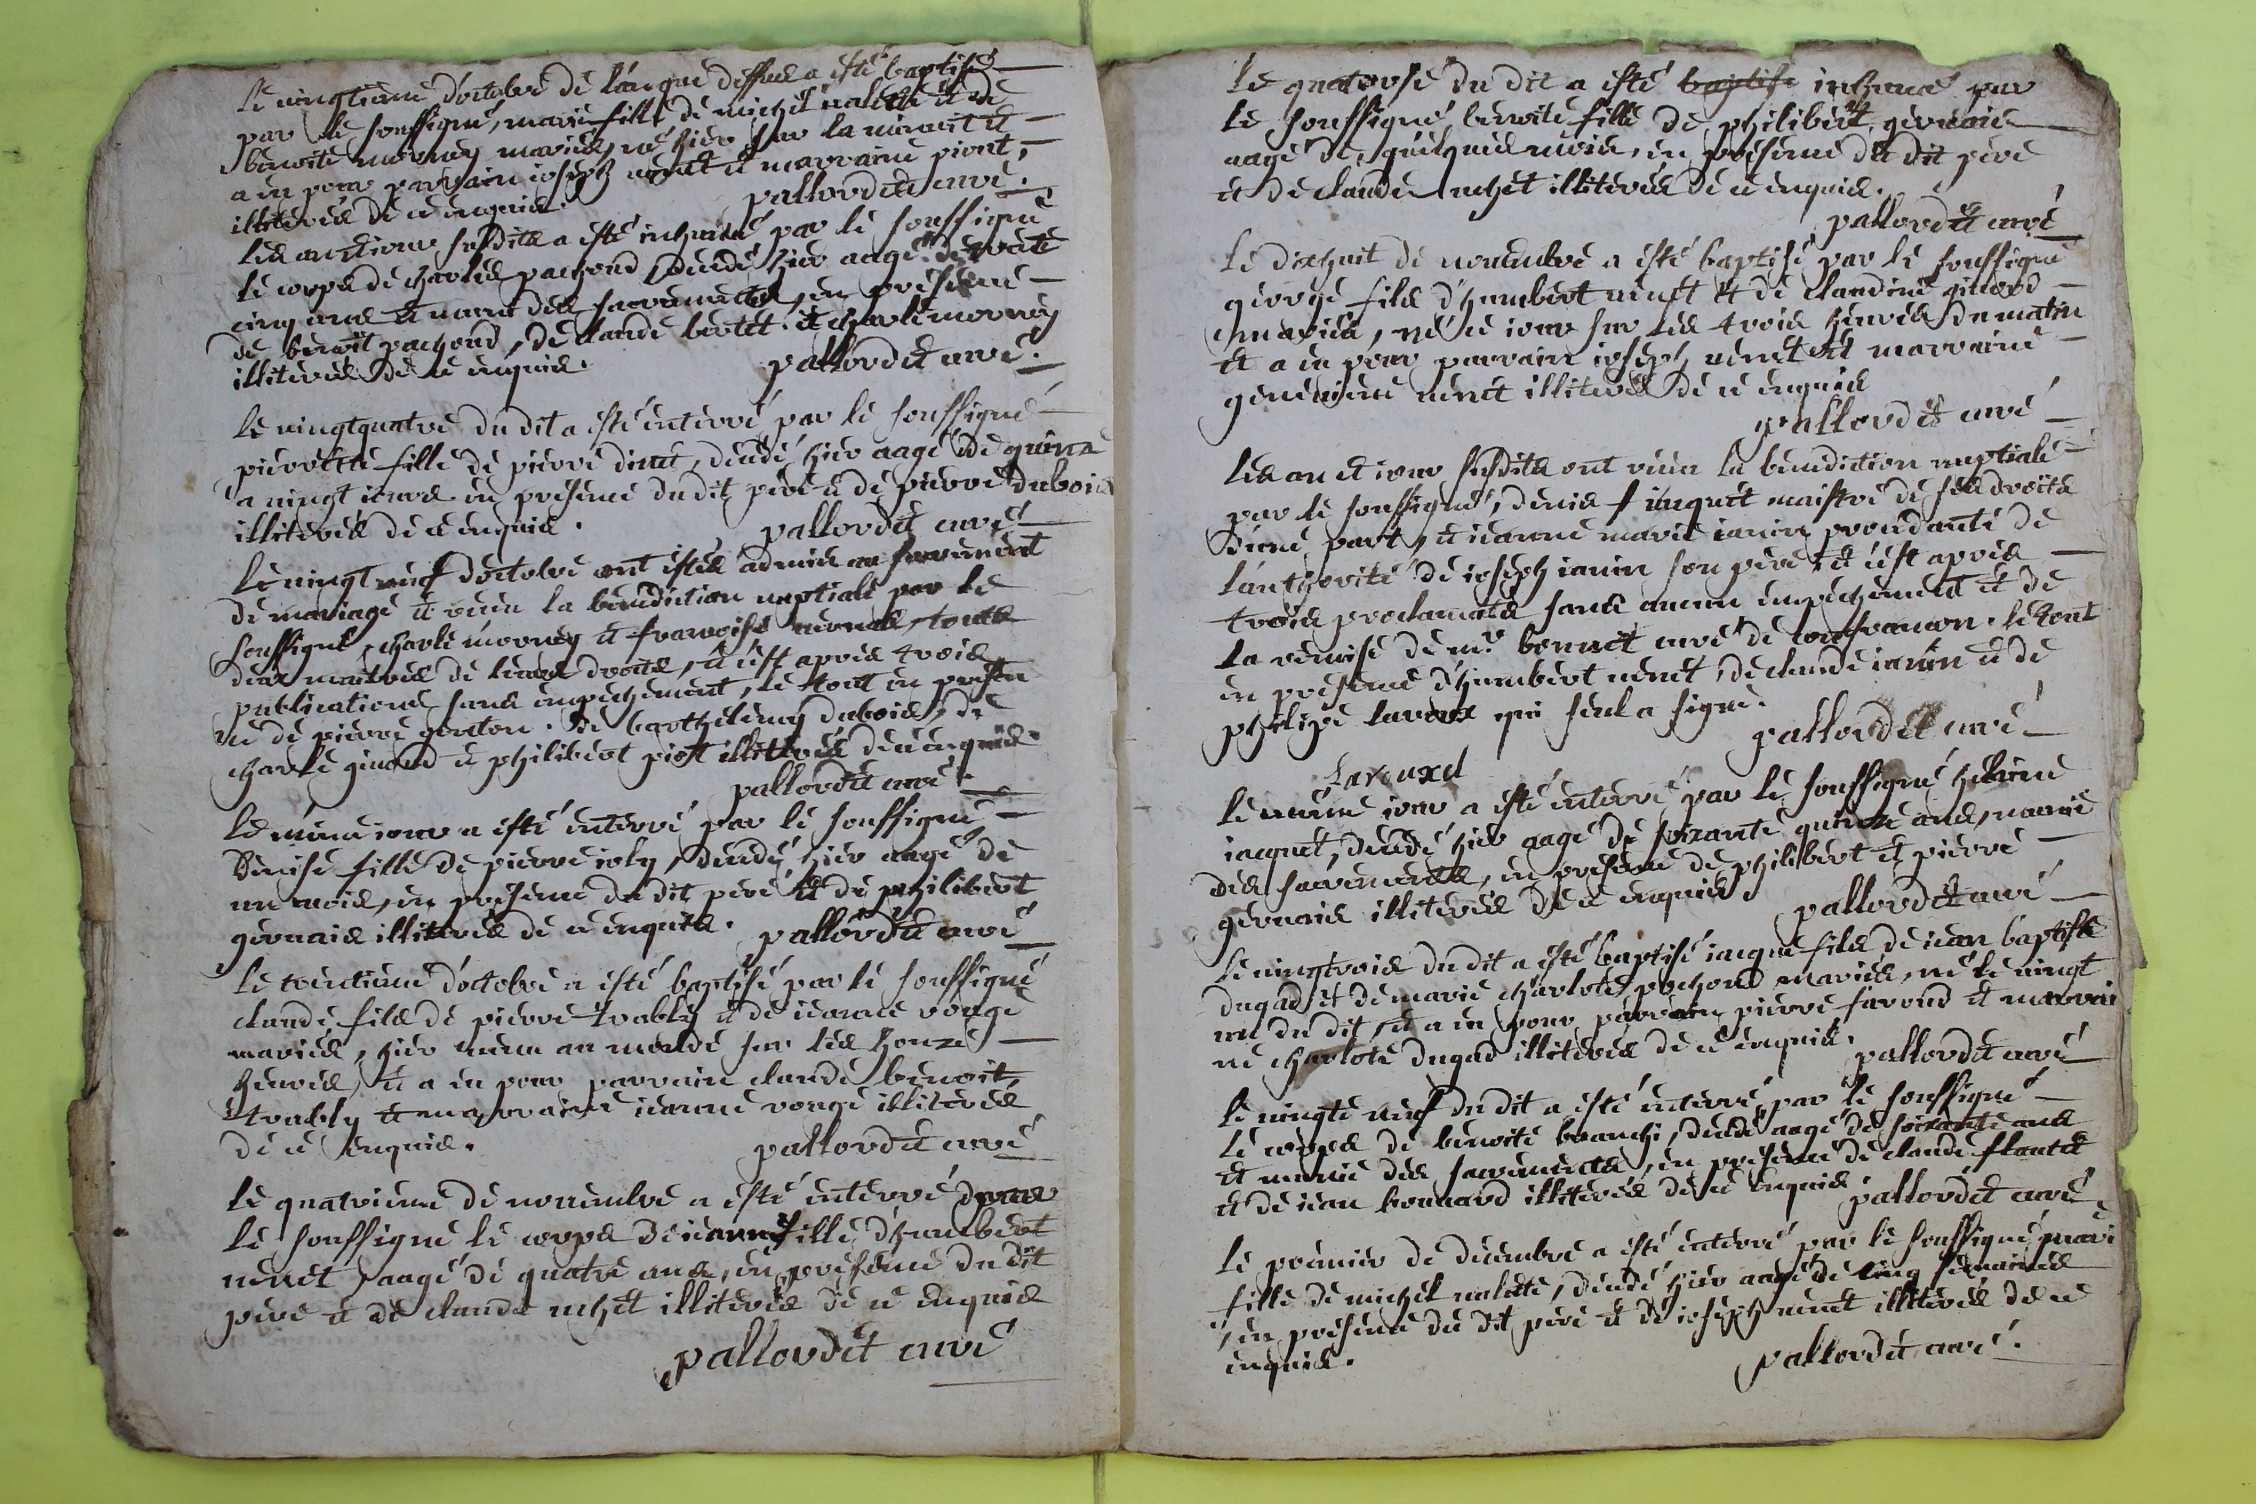 Le vingtieme d'octobre de l'an que dessus a esté baptisé
par le soussigné, marie fille de michel nalette et de
benoite morney mariés, né hier sur la minuit et
a eu pour parrain ioseph venet et marraine piont,
illiterés de ce enquis. pallordet curé.
Les an et iour susdits a esté inhumé par le soussigné
le corps de charles pachoud, decedé hier aagé de trente
cinq ans et muni des sacrements, en presence
de benoit pachoud, de claude bertet et charle morney
illiterés de ce enquis. pallordet curé.
Le vingtquatre du dit a esté enterré par le soussigné
pierrette fille de pierre dinet, decedé hier aagé de quinze
a vingt iours en presence du dit pere et de pierre dubois
illiterés de ce enquis. pallordet curé
Le vingt neuf d'octobre ont estés admis au sacrement
de mariage et receu la benediction nuptiale par le
soussigné, charle morney et francoise touts
deux maitres de leurs droits, et c'est après trois
publications sans empechement, le tout en presen
ce de pierre genton. de barthelemy dubois, de
charle ginoud et philibert piost illiterés de ce enquis.
pallordet curé.
Le méme iour a esté enterré par le soussigné
Denise fille de pierre ioly, decedé hier aagé de
un mois, en presence du dit peré et de philibert
gervais illiterés de ce enquis. pallordet curé
Le trentieme d'octobre a esté baptisé par le soussigné
claude fils de pierre trably et de ieanne rongé
mariés, hier venu au monde sur les honze
heures, et a eu pour parrain claude benoit
trably et marraine ieanne rongé illiterés
de ce enquis. pallordet curé
Le quatrieme de novembre a esté enterré par
le soussigné le corps de ieanne fille d'humbert
venet, aagé de quatre ans, en presence du dit
pere et de claude uchet illiterés de ce enquis
pallordet curé
Le quatorse du dit a esté baptise inhumé par
le soussigné benoite fille de philibert gervais
aagé de quelques mois, en presence du dit peré
et de claude uchet illiterés de ce enquis.
pallordet curé
Le dixhuit de novembre a esté baptisé par le soussigné
george fils d'humbert venet et de claudine ginoud
mariés, né ce iour sur les trois heures du matin
et a eu pour parrain ioseph venet et marraine
genevieve venet illiterés de ce enquis
pallordet curé
Les an et iour susdits ont receu la benediction nuptiale
par le soussigné, denis iaquet maistre de ses droits
d'une part, et ieanne marie ianin procedante de
l'authorité de ioseph ianin son pere, et c'est après
trois proclamats sans aucun empechement et de
la remise de mr bonnet curé de confrancon. le tout
en presence d'humbert venet, de claude ianin et de
philipe laroux qui seul a signé.
pallordet curé
Larouxd
Le méme iour a esté enterré par le soussigné helaine
iacquet, decedé hier aagé de soixante quinze ans, munie
des sacrements, en presence de philibert et pierre
gervais illiterés de ce enquis. pallordet curé
Le vingtrois du dit a esté baptisé iacque fils de iean baptiste
dugad et de marie charlote pochoud mariés, né le vingt
un du dit, et a eu pour parrain pierre favoud et marrai
ne charlote dugad illiterés de ce enquis. pallordet curé
Le vingte neuf du dit a esté enterré par le soussigné
le corps de benoite branchi, decedé aagé de soixante ans
et munie des sacrements, en presence de claude flantet
et de iean bonnard illiterés de ce enquis pallordet curé
Le premier de decembre a esté enterré par le soussigné mari
fille de michel nalette, decedé hier aagé de cinq semaines
, en presence du dit pere et de ioseph venet illiterés de ce
enquis. pallordet curé.